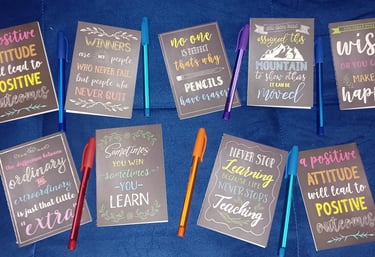 a positive
ATTITUDE
will lead to
POSITIVE
outcomes
WINNERS
are not people
WHO NEVER FAIL
but people who
NEVER QUIT
no one
IS PERFECT
that's why
PENCILS
have erasers
assigned this
MOUNTAIN
to show others
IT CAN BE
moved
wis
DO YOU
MAKE
HAPP
The difference between
ordinary
extraordinary
is just that little
"extra"
Sometimes
YOU WIN
sometimes
-YOU-
LEARN
NEVER STOP
Learning
BECAUSE LIFE
NEVER STOPS
Teaching
a positive
ATTITUDE
will lead to
POSITIVE
outcomes